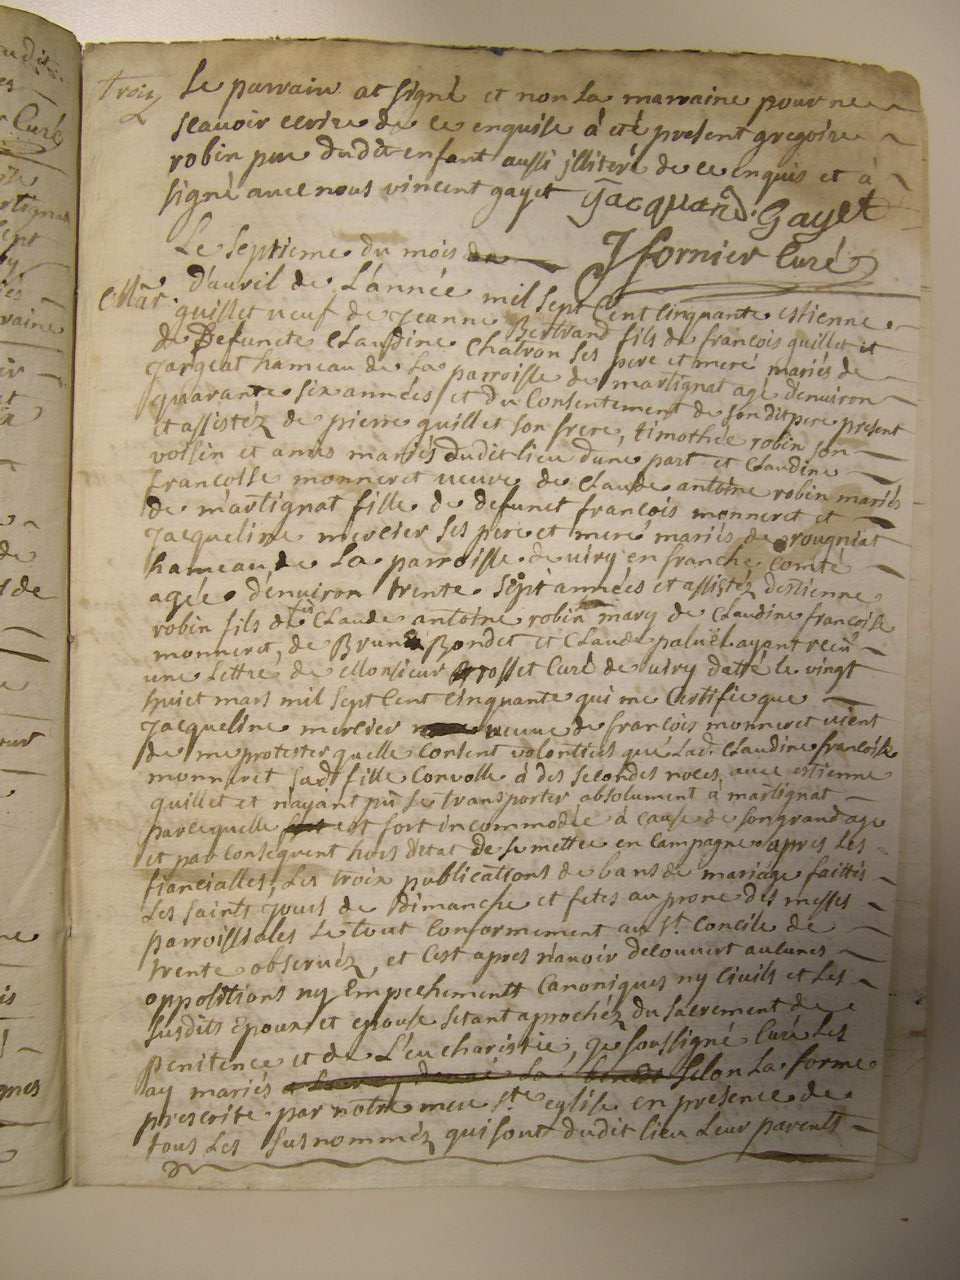 troix
Le parrain at signé et non La marraine pour ne
scauoir ecrire de ce enquise à eté present gregoire
robin pere dudit enfant aussi jlliteré de ce enquis et à
signé auec nous vincent gayet Jacquand. Gayet
J fornier Curé
Le Septieme du mois
Mar.
d'auril de L'année mil sept Cent Cinquante estienne
quillet veuf de Jeanne Bertrand fils de françois quillet et
de Defuncte Claudine Chatron ses pere et meré mariés de
Jargeat hameau de La parroisse de martignat agé d'enuiron
quarante six années et du Consentement de son dit pere present
et assistéz de pierre quillet son frere, timothée robin son
voisin et amis mariés dudit lieu d'une part et Claudine
francoise monneret ueuve de Claude antoine robin mariés
de martignat fille de defunct françois monneret et
Jacqueline mercier ses pere et meré mariés de rougniat
hameau de La parroisse de uiry en franche Comté
agée d'énuiron trente sept années et assistéz d'estienne
robin fils de Claude antoine robin mary de Claudine françoise
monneret, de Brun Bondet et Claude paluël ayant recu
une Lettre de Monsieur grosset Curé de uiry datté le vingt
huict mars mil sept Cent Cinquante qui me Certifie que
Jacqueline mercier ueuue de françois monneret uient
de me protester quelle Consent volontiers que Lad. Claudine françoise
monneret sadt fille Convolle à des secondes noces auec estienne
quillet et n'ayant pü se transporter absolument à martignat
parcequelle est fort incommodée à Cause de son grand age
et par Consequent hors d'état de se mettre en Campagne apres Les
fiancialles, Les troix publications de bans de mariage faittés
Les saints Jours de Dimanche et fetes au prone des messes
parroissiales Le tout Conformement au St. Concile de
trente obseruéz, et C'est apres n'auoir découuert aucunes
oppositions ny Empechements Canoniques ny Ciuils et Les
susdits Epoux et epouse s'etant aprochéz du sacrement de
penitence et de L'eucharistie, Je soussigné Curé Les
ay mariés selon La forme
prescrite par notre mere Ste. eglise en présence de
tous Les susnomméz qui sont dudit lieu Leur parents